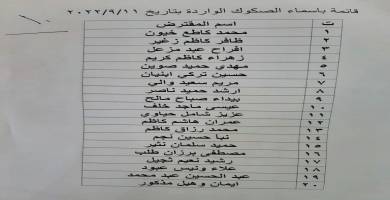 قائمة باسماء الصكوك الواردة بتاريخ ٢٠٢٢/٩/١١
ت اسم المقترض
١ محمد كاطع خيون
٢ ظافر كاظم زغير
٣ افراح عبد مزعل
٤ زهراء كاظم كريم
٥ مهدي حميد صوين
٦ حسين تركي ابنيان
٧ مريم سعيد والي
٨ ارشد حميد ناصر
٩ بيداء صباح مالح
١٠ عيسى ماجد خلف
١١ عزيز شامل حياوي
١٢ عمران هاشم كاظم
١٣ محمد رزاق كاظم
١٤ نبا حسين نجم
١٥ حميد سلمان نثير
١٦ مصطفى برزان طلب
١٧ رشيد نعيم ثجيل
١٨ علاء ونيس عبود
١٩ عبد الحسين عبد محمد
٢٠ ايمان وهيل مذكور